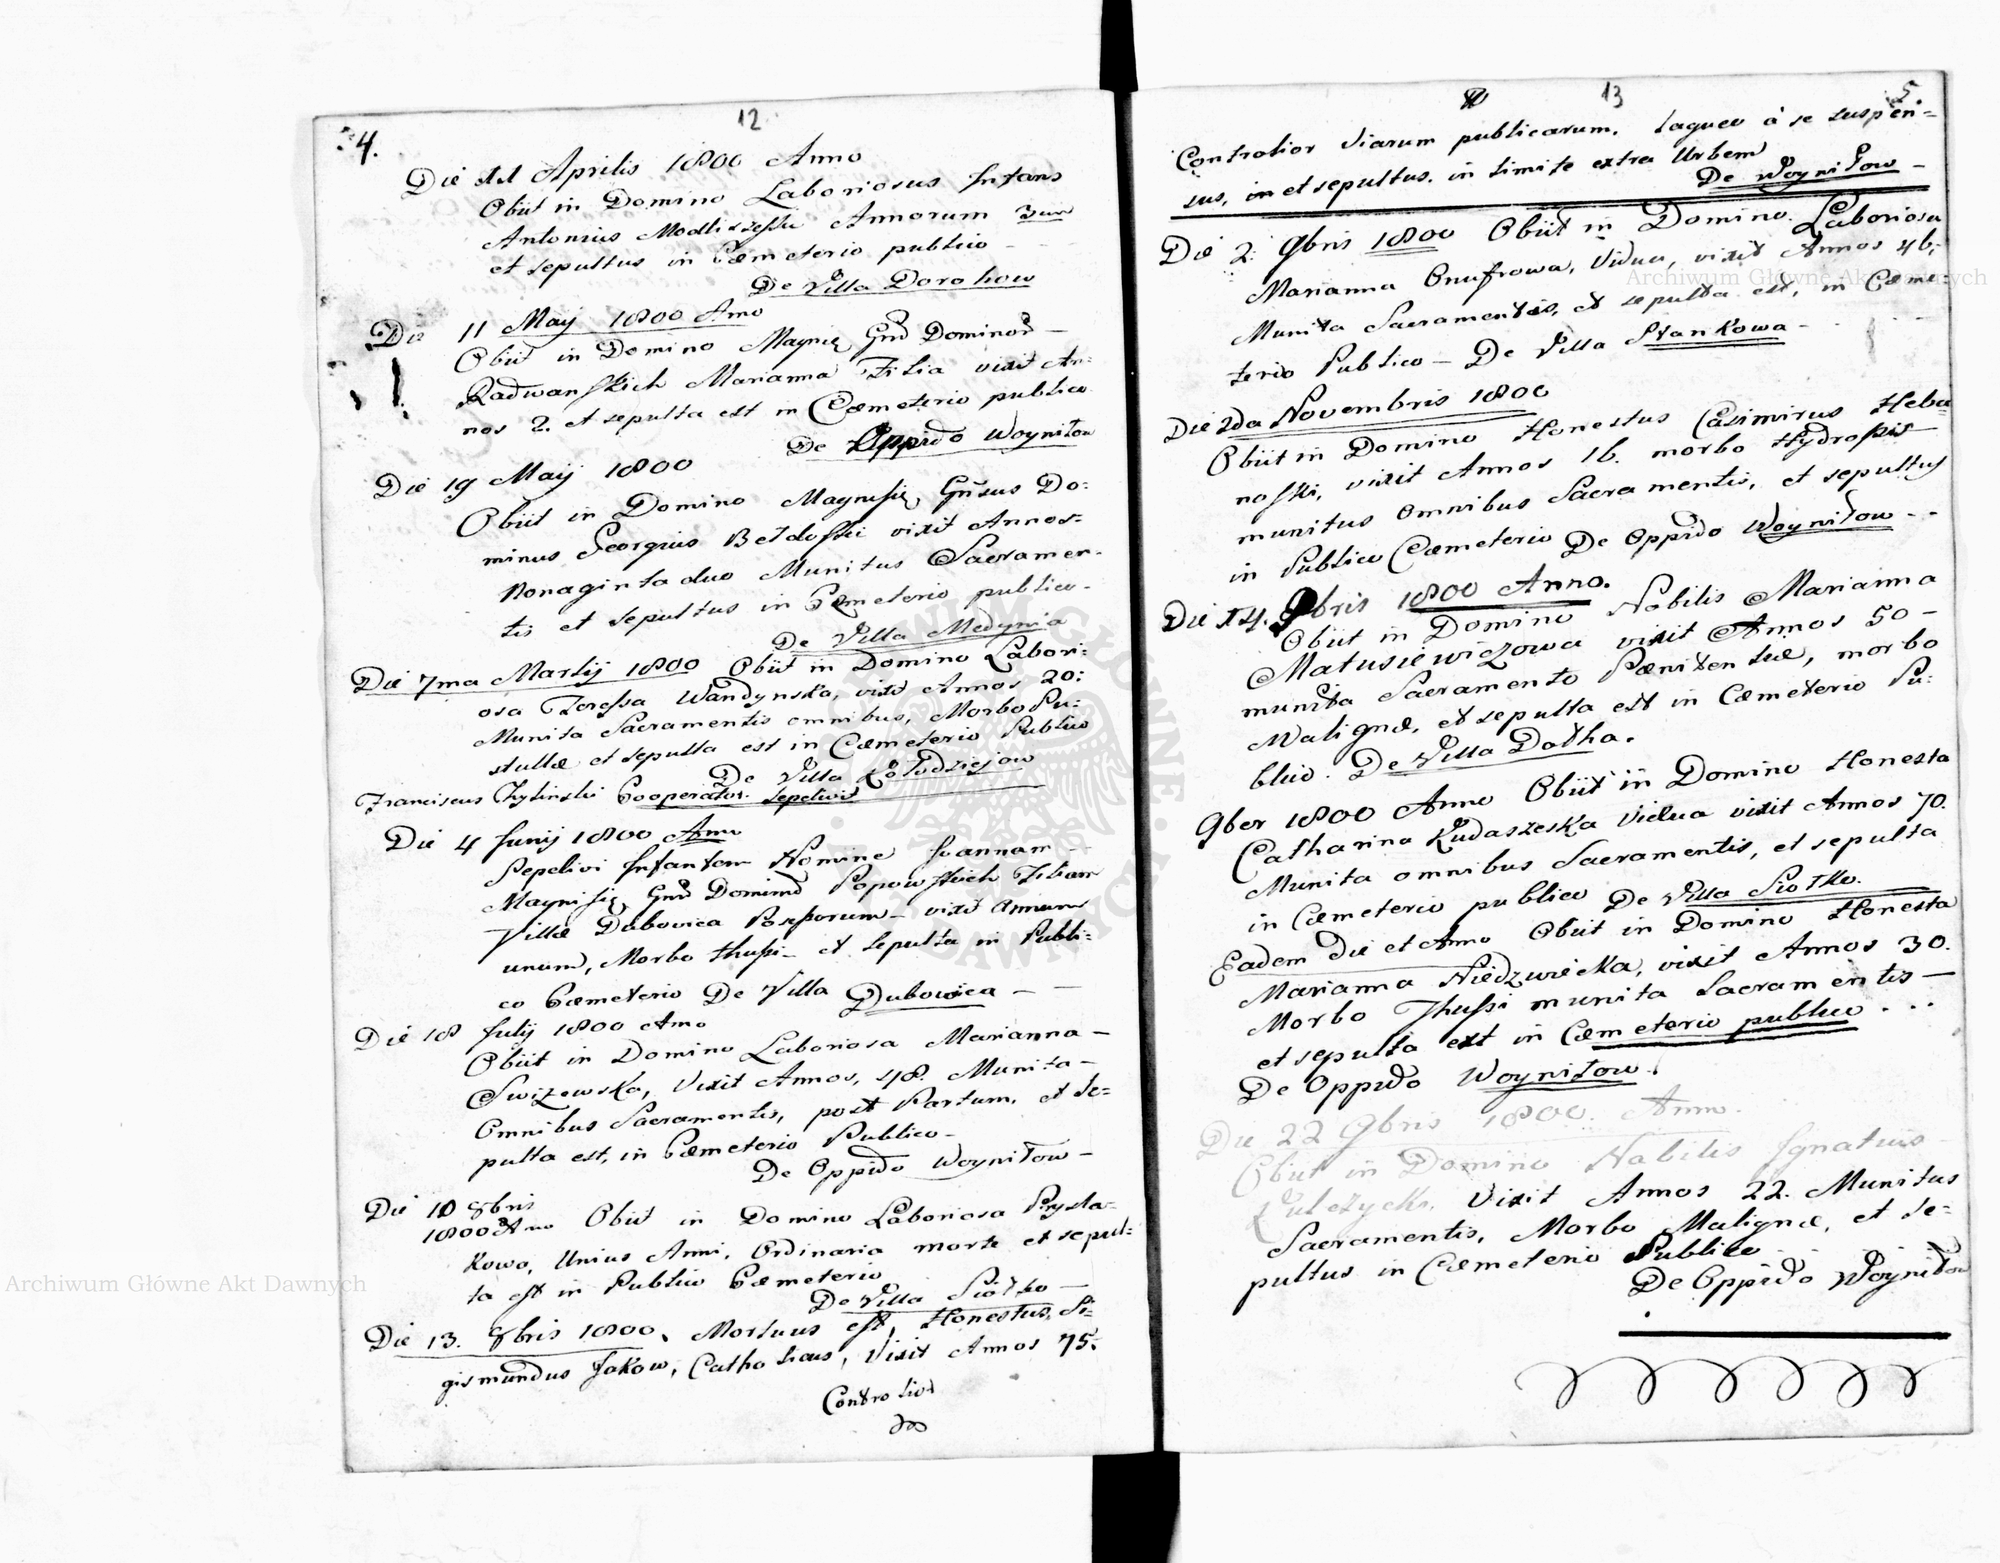 12
4.
Die 11 Aprilis 1800 Anno
Obiit in Domino Laboriosus Infans
Antonius Annorum
et sepultus in Cæmeterio publico
De Villa Dorohow
Die 11 Maij 1800 Anno
Obiit in Domino Magnię Gnd Dominod
Radwanskich Marianna Filia vixit An:
nos 2. et sepulta est in Cœmeterio publico
De Oppido Woynilow
Die 19 Maij 1800
Obiit in Domino Gñsus Do:
minus Georgius vixit Annos:
Nonaginta duo Munitus Sacramen-
tis et sepultus in Cœmeterio publico-
De Villa Medynia
Die 7ma Martij 1800 Obiit in Domino Labori:
osa Teressa Wandynska, vixit Annos 20:
Munita Sacramentis omnibus, Morbo Pu:
stullæ et sepulta est in Cæmeterio Publico
De Villa Kołodziejow
Franciscus Cooperator. sepelivit
Die 4 Junij 1800 Anno
Sepelivi Infantem Nomine Joannam
Gnd Dominod Popowskich Filiam
Villæ Dubovica Possorum - vixit Annum
unum, Morbo thussi - et sepulta in Publi:
co Cæmeterio De Villa Dubowica -
Die 18 Julij 1800 Anno
Obiit in Domino Laboriosa Marianna -
Swizewska, Vixit Annos, 48. Munita -
Omnibus Sacramentis, post Partum, et se=
pulta est, in Cæmeterio Publico -
De Oppido Woynilow -
Die 10 8bris
1800 Ano Obiit in Domino Laboriosa Prysla=
kowa, Unius Anni, Ordinaria morte et sepul:
ta est in Publico Cæmeterio
De Villa Siołko
Die 13. 8bris 1800, Mortuus est, Honestus, Si=
gismundus Jakow, Catholicus, Vixit Annos 75:
Controlior
13
5.
Controlior Viarum publicarum. Laqueo à se suspen=
sus, in et sepultus. in limite extra Urbem
De Woynilow -
Die 2: 9bris 1800 Obiit in Domino. Laboriosa
Marianna Onufrowa, Vidua, vixit Annos 46:
Munita Sacramentis, et sepulta est, in Cæme
terio Publico - De Villa Stankowa -
Die 2da Novembris 1800
Obiit in Domino Honestus Casimirus Heba=
noski, vixit Annos 16. morbo Hydropis
munitus omnibus Sacramentis, et sepultus
in Publico Cœmeterio De Oppido Woynilow - -
Die 14. 9bris 1800 Anno.
Obiit in Domino Nobilis Marianna
Matusiewiczowa vixit Annos 50 -
munita Sacramento Pœnitentiæ, morbo
Malignæ, et sepulta est in Cæmeterio Pu:
blico. De Villa Dołha.
9ber 1800 Anno Obiit in Domino Honesta
Catharina Kudaszeska Vidua vixit Annos 70.
Munita omnibus Sacramentis, et sepulta
in Cæmeterio publico De Villa Siołko.
Eadem Die et Anno Obiit in Domino Honesta
Marianna Niedzwiecka, vixit Annos 30.
Morbo Thussi munita Sacramentis -
et sepulta est in Cæmeterio publico . . .
De Oppido Woynilow.
Die 22 9bris 1800. Anno.
Obiit in Domino Nobilis Ignatius
Kulczycki, Vixit Annos 22. Munitus
Sacramentis, Morbo Malignæ, et se=
pultus in Cæmeterio Publico
De Oppido Woynilow
Archiwum Główne Akt Dawnych
Archiwum Główne Akt Dawnych
ARCHIWUM GŁÓWNE AKT DAWNYCH